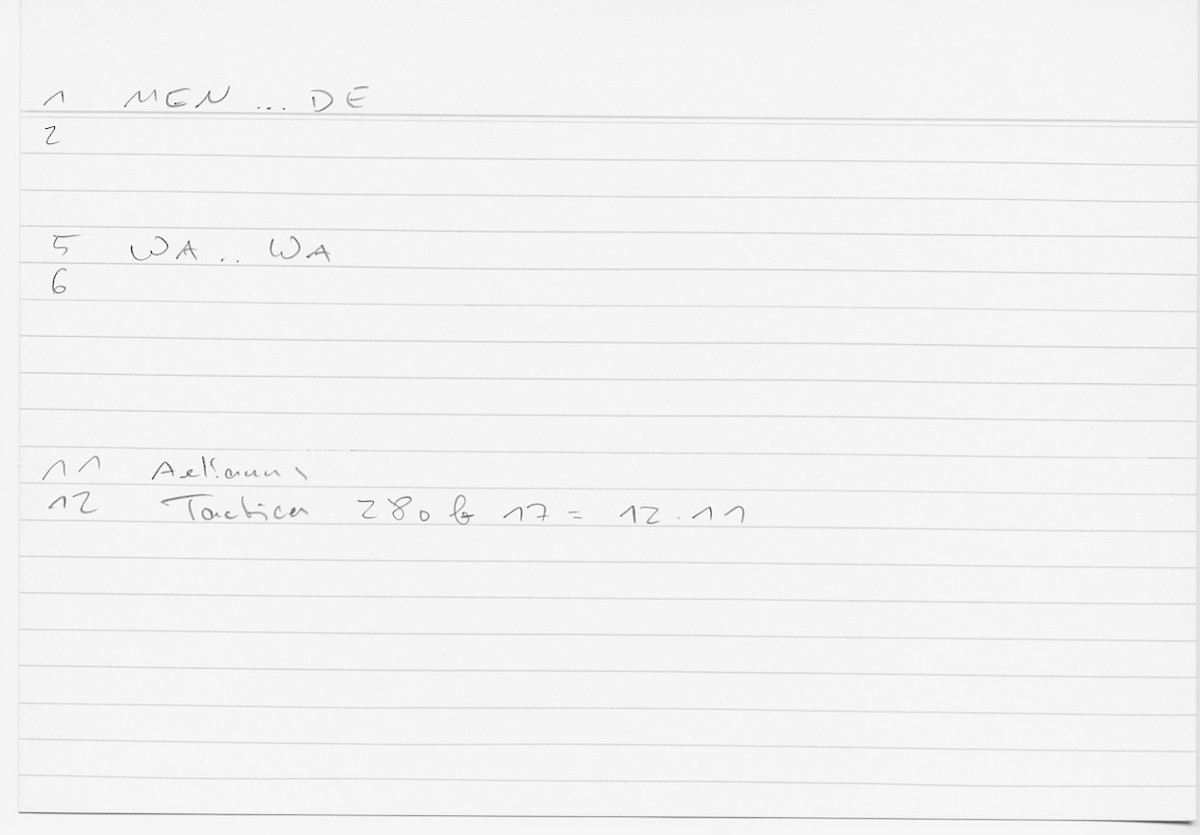 1 MEN ... DE
2
5 WA .. WA
6
11
12 Tactica 280 b 17 = 12.11